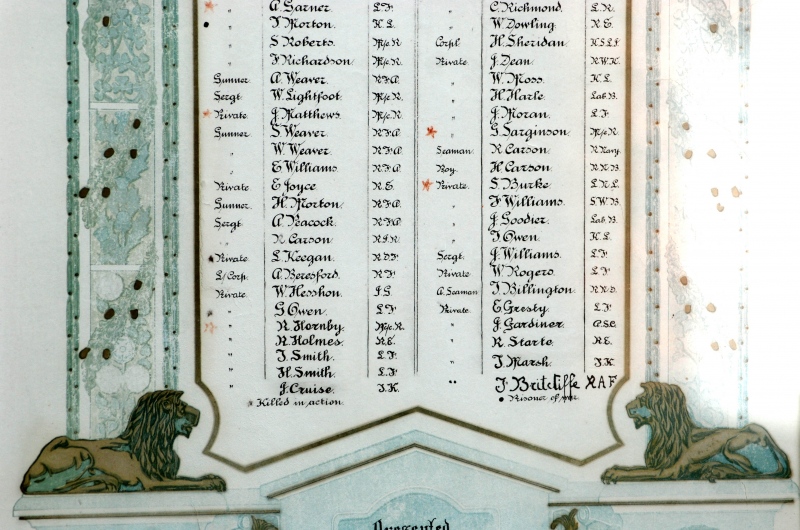 * " A Garner. L.F.
• " T Morton. K.L.
" S Roberts. M/c R.
" F Richardson. M/c R.
Gunner A. Weaver. R.F.A.
Sergt. W. Lightfoot. M/c R.
* Private J. Matthews. M/c R.
Gunner S. Weaver. R.F.A.
" W. Weaver. R.F.A.
" E Williams. R.F.A.
Private E Joyce. R.E.
Gunner H. Morton. R.F.A.
Sergt. A. Peacock. R.F.A.
" R. Carson.
Private L. Keegan. R.D.F.
L/Corp. A. Beresford. R.F.
Private W. Hesshon.
" G. Owen. L.F.
* " R. Hornby. M/c R.
" R. Holmes. R.E.
" J. Smith. L.F.
" H. Smith. L.F.
" J. Cruise. J.K.
* Killed in action.
" C. Richmond. L.R.
" W. Dowling. R.E.
Corpl H. Sheridan. K.S.L.I.
Private J. Dean. R.W.K.
" W. Moss. K.L.
" H. Harle. Lab. B.
" J. Moran. L.F.
* " G. Sarginson. M/c R.
Seaman R. Carson. R. Navy.
Boy H. Carson. R.N.B.
* Private. S. Burke. L.N.L.
" F Williams. S.W.B.
" J. Goodier. Lab. B.
" T. Owen. K.L.
Sergt. J. Williams. L.F.
Private W. Rogers. L.F.
A. Seaman T. Billington. R.N.D.
Private E. Gresty. L.F.
" J. Gardiner. A.S.C.
" R. Starte. R.E.
" J. Marsh. J.K.
" J. Britcliffe RAF
• Prisoner of war.
Presented